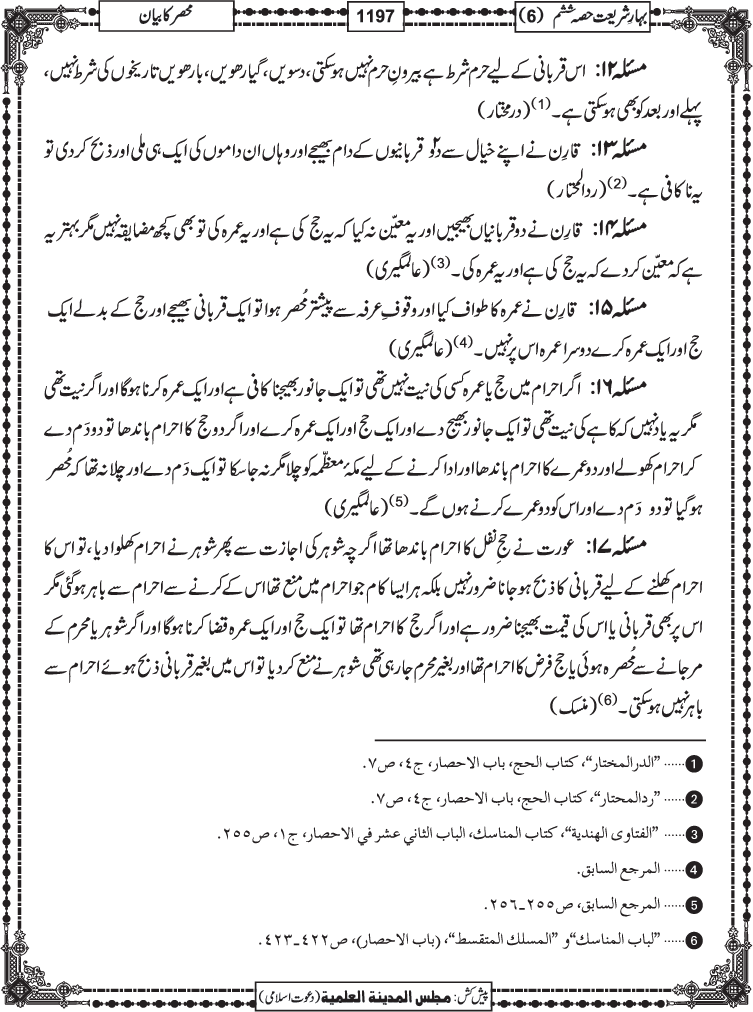 بہارِ شریعت حصہ ششم (6)
1197
محصر کا بیان
مسئلہ ۱۲: اس قربانی کے لیے حرم شرط ہے بیرونِ حرم نہیں ہوسکتی، دسویں، گیارھویں، بارھویں تاریخوں کی شرط نہیں،
پہلے اور بعد کو بھی ہوسکتی ہے۔ (1) (درمختار)
مسئلہ ۱۳: قارِن نے اپنے خیال سے دو۲ قربانیوں کے دام بھیجے اور وہاں ان داموں کی ایک ہی ملی اور ذبح کردی تو
یہ ناکافی ہے۔ (2) (ردالمحتار)
مسئلہ ۱۴: قارِن نے دو قربانیاں بھیجیں اور یہ معیّن نہ کیا کہ یہ حج کی ہے اور یہ عمرہ کی تو بھی کچھ مضایقہ نہیں مگر بہتر یہ
ہے کہ معیّن کردے کہ یہ حج کی ہے اور یہ عمرہ کی۔ (3) (عالمگیری)
مسئلہ ۱۵: قارِن نے عمرہ کا طواف کیا اور وقوفِ عرفہ سے پیشتر مُحصر ہوا تو ایک قربانی بھیجے اور حج کے بدلے ایک
حج اور ایک عمرہ کرے دوسرا عمرہ اس پر نہیں۔ (4) (عالمگیری)
مسئلہ ۱۶: اگر احرام میں حج یا عمرہ کسی کی نیت نہیں تھی تو ایک جانور بھیجنا کافی ہے اور ایک عمرہ کرنا ہوگا اور اگر نیت تھی
مگر یہ یاد نہیں کہ کاہے کی نیت تھی تو ایک جانور بھیج دے اور ایک حج اور ایک عمرہ کرے اور اگر دو حج کا احرام باندھا تو دو دَم دے
کر احرام کھولے اور دو عمرے کا احرام باندھا اور ادا کرنے کے لیے مکۂ معظّمہ کو چلا مگر نہ جاسکا تو ایک دَم دے اور چلا نہ تھا کہ مُحصر
ہوگیا تو دو دَم دے اور اس کو دو عمرے کرنے ہوں گے۔ (5) (عالمگیری)
مسئلہ ۱۷: عورت نے حجِ نفل کا احرام باندھا تھا اگرچہ شوہر کی اجازت سے پھر شوہر نے احرام کھلوا دیا، تو اس کا
احرام کھلنے کے لیے قربانی کا ذبح ہوجانا ضرور نہیں بلکہ ہر ایسا کام جو احرام میں منع تھا اس کے کرنے سے احرام سے باہر ہوگئی مگر
اس پر بھی قربانی یا اس کی قیمت بھیجنا ضرور ہے اور اگر حج کا احرام تھا تو ایک حج اور ایک عمرہ قضا کرنا ہوگا اور اگر شوہر یا محرم کے
مر جانے سے مُحصرہ ہوئی یا حج فرض کا احرام تھا اور بغیر محرم جارہی تھی شوہر نے منع کردیا تو اس میں بغیر قربانی ذبح ہوئے احرام سے
باہر نہیں ہوسکتی۔ (6) (منسک)
1 ...... ”الدرالمختار“، کتاب الحج، باب الاحصار، ج٤، ص٧.
2 ...... ”ردالمحتار“، کتاب الحج، باب الاحصار، ج٤، ص٧.
3 ...... ”الفتاوی الهندية“، کتاب المناسك، الباب الثاني عشر في الاحصار، ج١، ص٢٥٥.
4 ...... المرجع السابق.
5 ...... المرجع السابق، ص٢٥٥ـ٢٥٦.
6 ...... ”لباب المناسك“ و ”المسلك المتقسط“، (باب الاحصار)، ص٤٢٢ـ٤٢٣.
پیش کش: مجلس المدینة العلمیة (دعوت اسلامی)